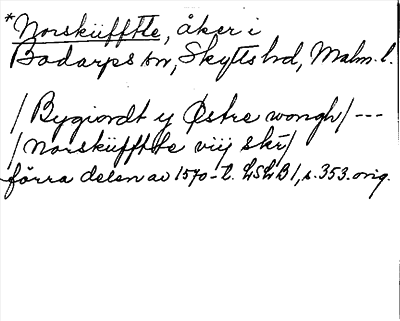 *Norskiifftte, åker i
Bodarps sn, Skytts hd, Malm. l.
/Bygiordt y Østre wongh/ ---
/Norskiifftte viij skr/
förra delen av 1570-t. LSLB 1, s. 353. orig.